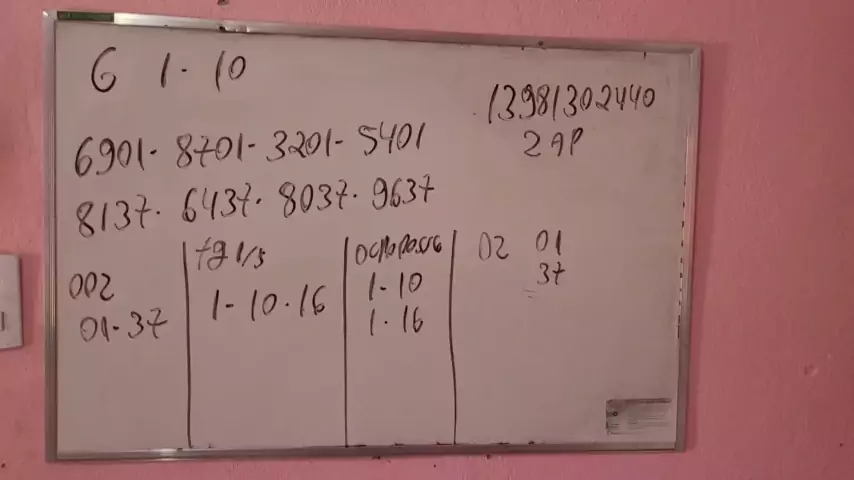 6 1 - 10
13981302440
2 AP
6901 - 8701 - 3201 - 5401
8137 - 6437 - 8037 - 9637
002
01 - 37
1 - 10 - 16
1 - 10
1 - 16
02 01
37